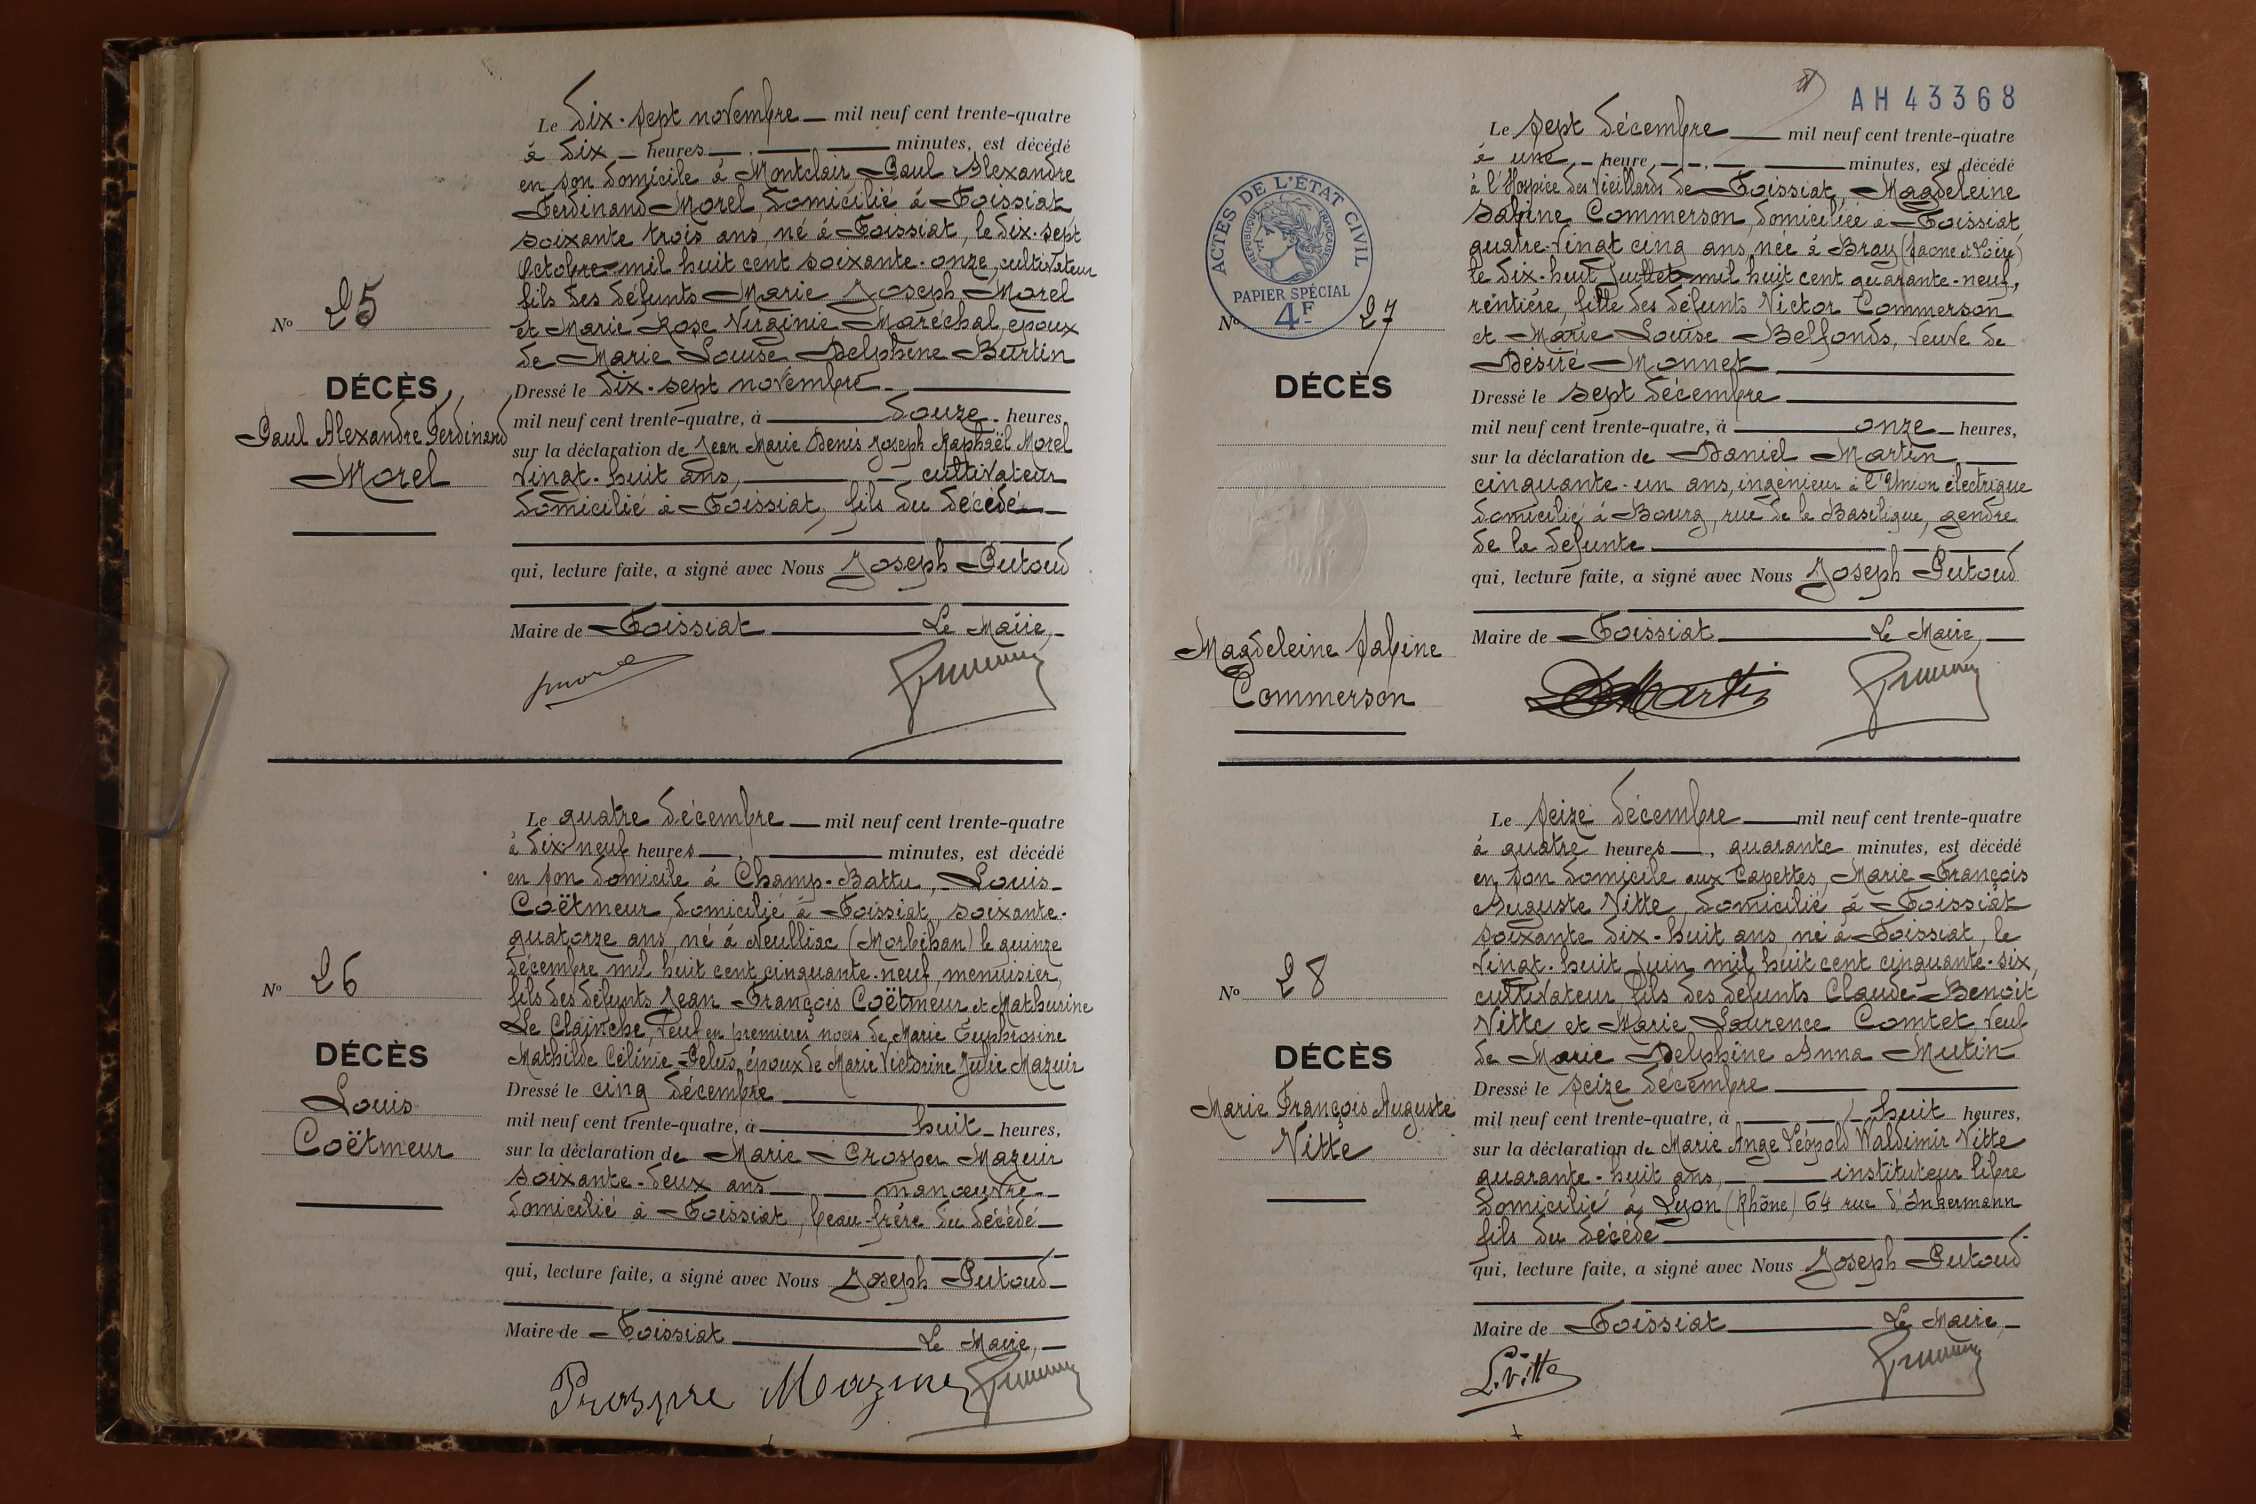 Le dix-sept novembre mil neuf cent trente-quatre
à dix heures minutes, est décédé
en son domicile à Montclair Paul Alexandre
Ferdinand Morel, domicilié à Foissiat
soixante trois ans, né à Foissiat, le dix-sept
Octobre mil huit cent soixante-onze, cultivateur
fils des défunts Marie Joseph Morel
et Marie Rose Virginie Maréchal, époux
de Marie Louise Delphine Burtin
Nº 25
DÉCÈS
Paul Alexandre Ferdinand
Morel
Dressé le dix-sept novembre
mil neuf cent trente-quatre, à douze heures,
sur la déclaration de Jean Marie Denis Joseph Raphaël Morel
vingt-huit ans, cultivateur
domicilié à Foissiat, fils du décédé
qui, lecture faite, a signé avec Nous Joseph Putoud
Maire de Foissiat Le Maire,
Le quatre décembre mil neuf cent trente-quatre
à dix-neuf heures minutes, est décédé
en son domicile à Champ-Battu, Louis
Coëtmeur, domicilié à Foissiat, soixante-
quatorze ans, né à Neulliac (Morbihan) le quinze
décembre mil huit cent cinquante-neuf, menuisier,
fils des défunts Jean François Coëtmeur et Mathurine
Le Clainche, veuf en premières noces de Marie Euphrosine
Mathilde Célinie Pelus, époux de Marie Victorine Julie Mazuir
Nº 26
DÉCÈS
Louis
Coëtmeur
Dressé le cinq décembre
mil neuf cent trente-quatre, à huit heures,
sur la déclaration de Marie Prosper Mazuir
soixante-deux ans manœuvre
domicilié à Foissiat, beau-frère du décédé
qui, lecture faite, a signé avec Nous Joseph Putoud
Maire de Foissiat Le Maire,
AH 43368
Le sept décembre mil neuf cent trente-quatre
à une heure, minutes, est décédé
à l'Hospice des Vieillards de Foissiat, Magdeleine
Sabine Commerson, domiciliée à Foissiat
quatre-vingt cinq ans, née à Bray (Saône et Loire)
le dix-huit Juillet mil huit cent quarante-neuf,
rentière, fille des défunts Victor Commerson
et Marie Louise Belfonds, veuve de
Désiré Monnet
ACTES DE L'ÉTAT CIVIL
RÉPUBLIQUE FRANÇAISE
PAPIER SPÉCIAL
4F
Nº 27
DÉCÈS
Magdeleine Sabine
Commerson
Dressé le sept décembre
mil neuf cent trente-quatre, à onze heures,
sur la déclaration de Daniel Martin
cinquante-un ans, ingénieur à l'Union électrique
domicilié à Bourg, rue de la Basilique, gendre
de la défunte
qui, lecture faite, a signé avec Nous Joseph Putoud
Maire de Foissiat Le Maire,
DMartin
Le seize décembre mil neuf cent trente-quatre
à quatre heures, quarante minutes, est décédé
en son domicile aux Capettes, Marie François
Auguste Vitte, domicilié à Foissiat
soixante dix-huit ans, né à Foissiat, le
vingt-huit juin mil huit cent cinquante-six,
cultivateur, fils des défunts Claude Benoit
Vitte et Marie Laurence Comtet, veuf
de Marie Delphine Anna Mutin
Nº 28
DÉCÈS
Marie François Auguste
Vitte
Dressé le seize décembre
mil neuf cent trente-quatre, à huit heures,
sur la déclaration de Marie Ange Léopold Waldimir Vitte
quarante-huit ans, instituteur libre
domicilié à Lyon (Rhône) 64 rue d'Inkermann
fils du décédé
qui, lecture faite, a signé avec Nous Joseph Putoud
Maire de Foissiat Le Maire,
L. Vitte